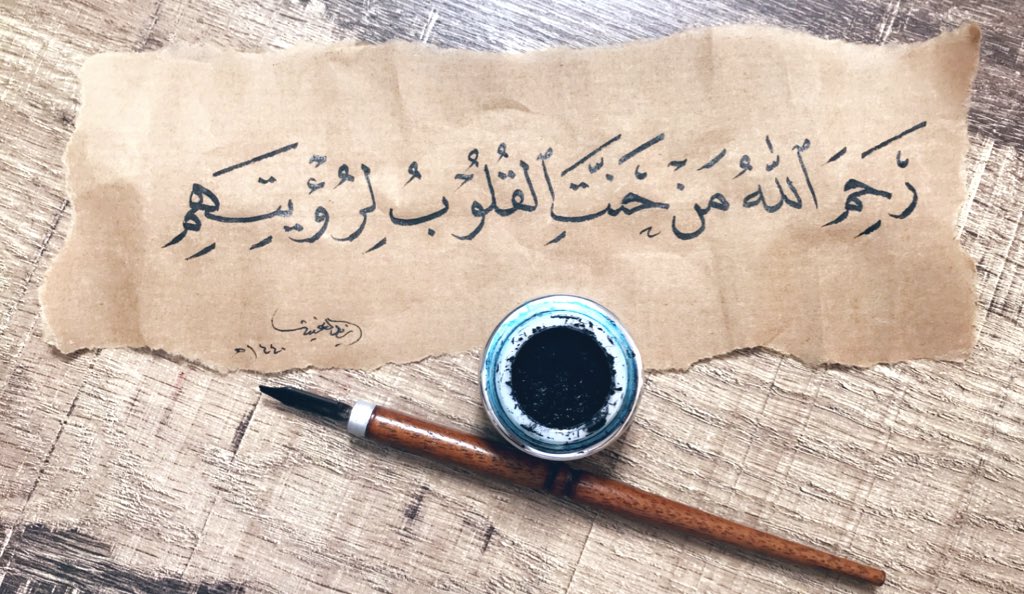 رَحِمَ ٱللهُ مَنْ حَنَّتَِ ٱلقُلُوْبُ لِرُؤْيتِـهِمِ
١٤٤٠ه